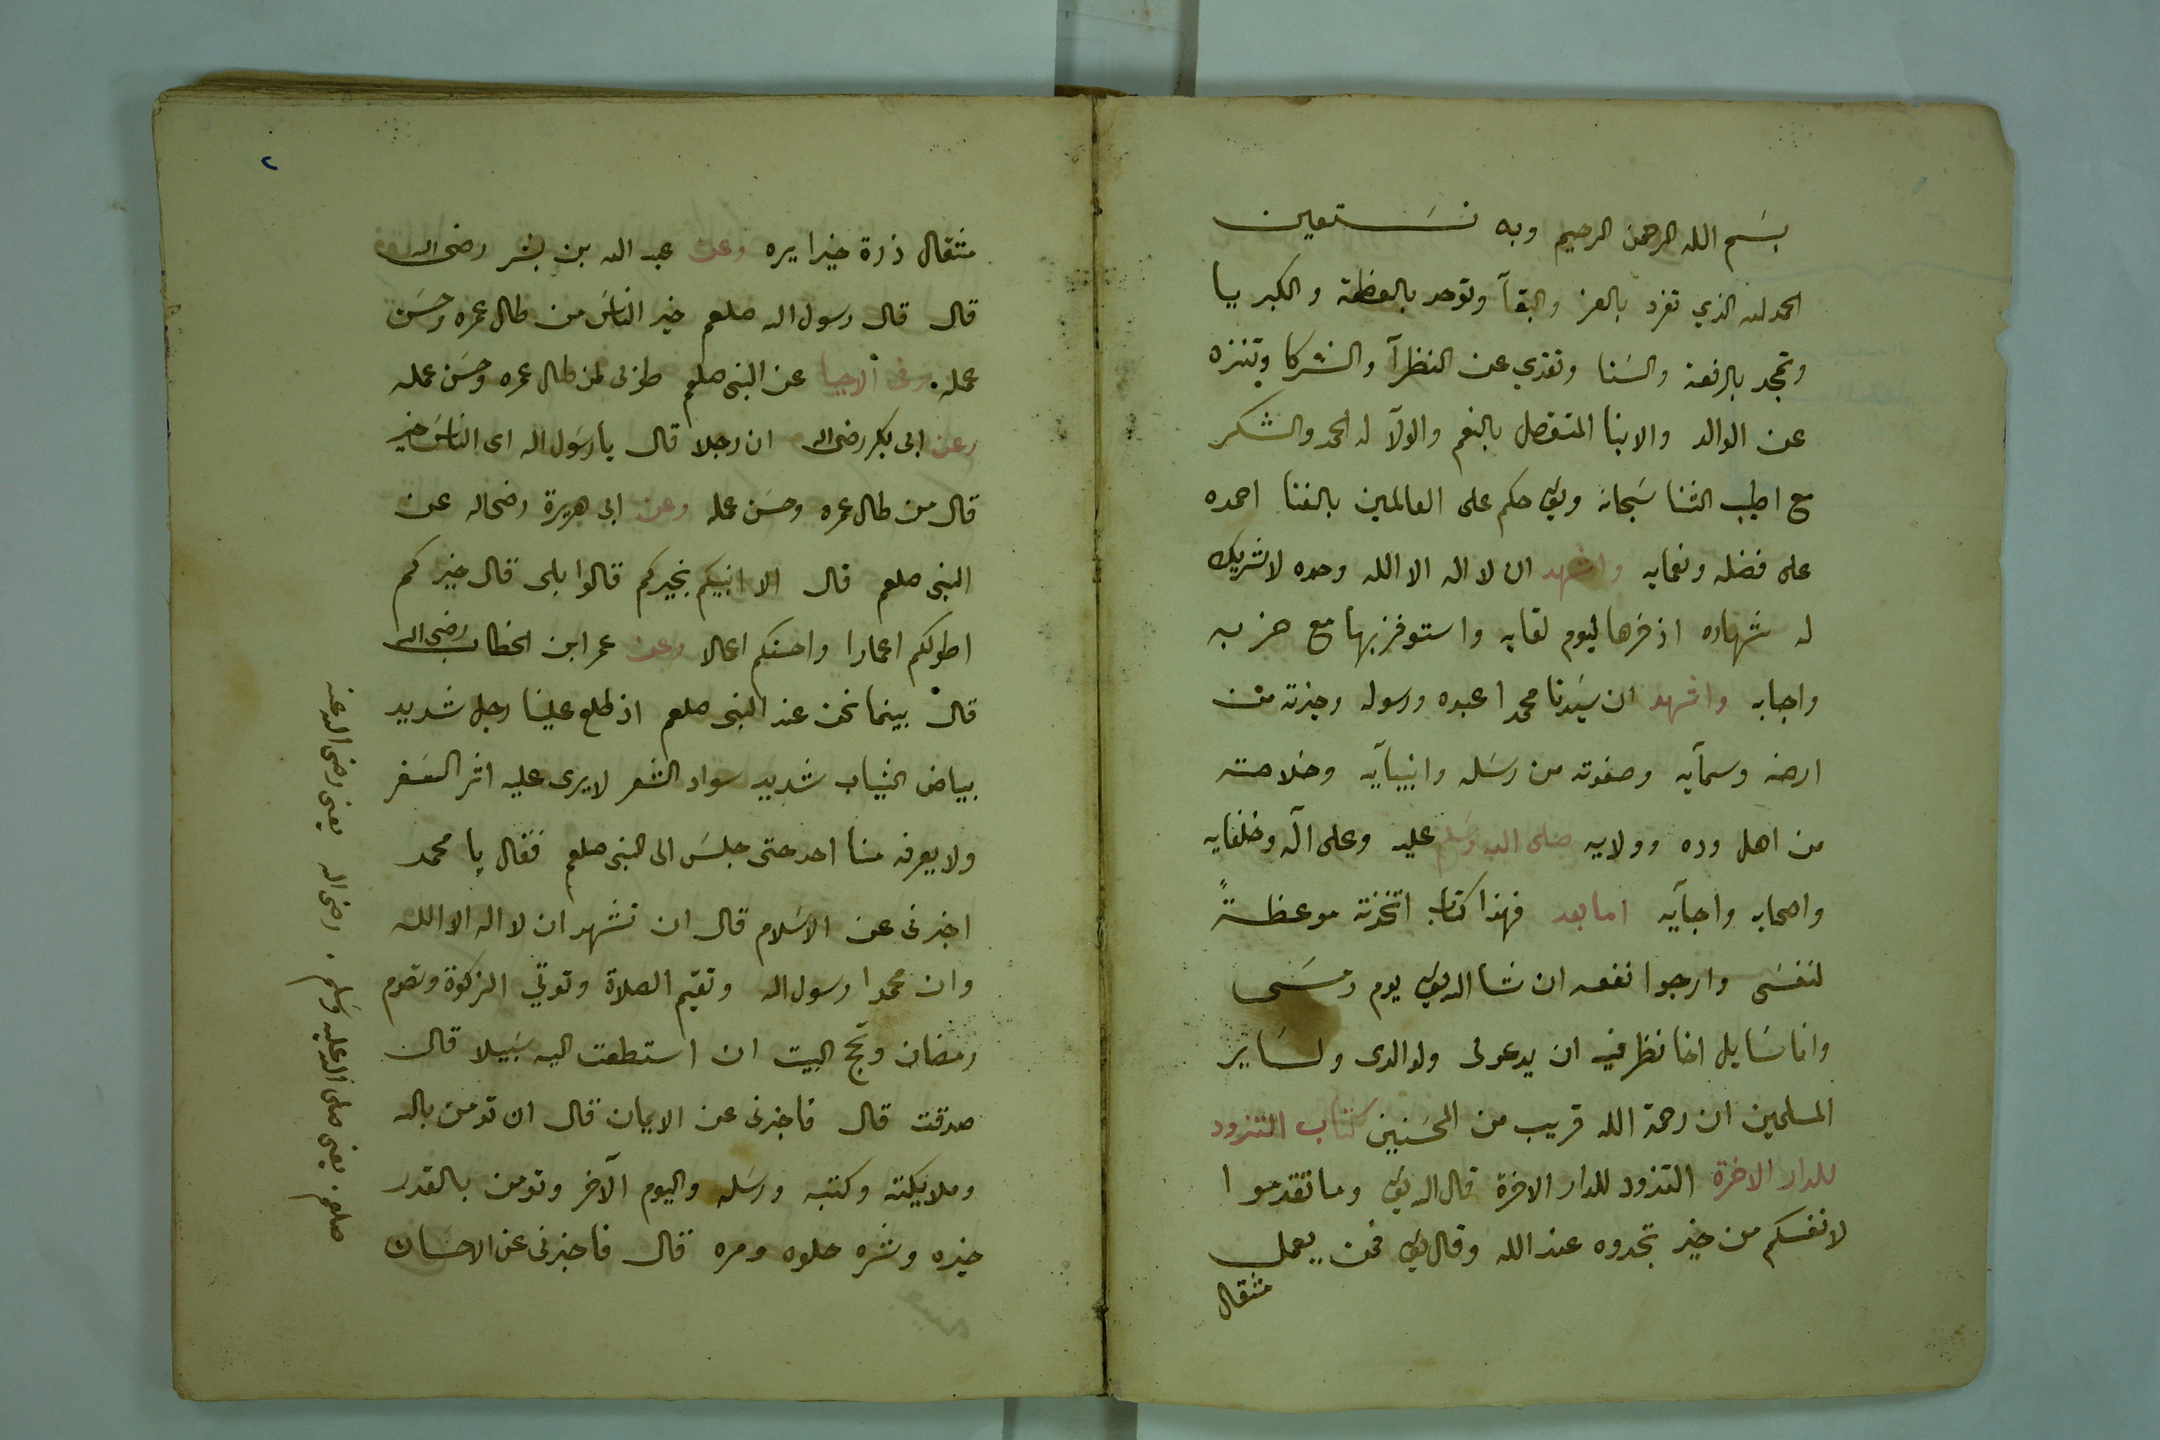 بسم الله الرحمن الرحيم وبه نستعين
الحمد لله الذي تفرد بالعز والبقآ وتوحد بالعظمة والكبريا
وتمجد بالرفعة والسنا وتقدس عن النظرآ والشركا وتنزه
عن الوالد والابنا المتفضل بالنعم والولآ له الحمد والشكر
مع اطيب الثنا سبحانه وتع حكم على العالمين بالفنا احمده
على فضله ونعمايه واشهد ان لا اله الا الله وحده لا شريك
له شهاده اذخرها ليوم لقايه واستوفز بها مع حزبه
واحبابه واشهد ان سيدنا محمدا عبده ورسوله وخيرته من
ارضه وسمآيه وصفوته من رسله وانبيآيه وخلاصته
من اهل وده وولايه صلى الله وسلم عليه وعلى آله وخلفايه
واصحابه واحبآيه اما بعد فهذا كتاب اتخذته موعظةً
لنفسى وارجوا نفعه ان شا الله تع يوم رمسى
وانا سايل اخا نظر فيه ان يدعو لى ولوالدى ولساير
المسلمين ان رحمة الله قريب من المحسنين كتاب التزود
للدار الاخرة التزود للدار الاخرة قال الله تع وما تقدموا
لانفسكم من خير تجدوه عند الله وقال تع فمن يعمل
مثقال
٢
مثقال ذرة خيرا يره وعن عبد الله بن بشر رضى الله
قال قال رسول اله صلعم خير الناس من طال عمره وحسن
عمله. وفى الاحيا عن النبى صلعم طوبى لمن طال عمره وحسن عمله
وعن ابى بكر رضى اله ان رجلا قال يا رسول اله اى الناس خير
قال من طال عمره وحسن عمله وعن ابى هريرة رضى اله عن
النبى صلعم قال الا انبيكم بخيركم قالوا بلى قال خيركم
اطولكم اعمارا واحسنكم اعمالا وعن عمر ابن الخطاب رضى اله
قال بينما نحن عند النبى صلعم اذ طلع علينا رجل شديد
بياض الثياب شديد سواد الشعر لا يرى عليه اثر السفر
ولا يعرفه منا احد حتى جلس الى النبى صلعم فقال يا محمد
اخبرنى عن الاسلام قال ان تشهد ان لا اله الا الله
وان محمدا رسول اله وتقيم الصلاة وتوتي الزكوة وتصوم
رمضان وتحج البيت ان استطعت اليه سبيلا قال
صدقت قال فاخبرنى عن الايمان قال ان تومن باله
وملايكته وكتبه ورسله واليوم الآخر وتومن بالقدر
خيره وشره حلوه ومره قال فاخبرنى عن الاحسان
صلعم. يعنى صلى الله عليه وسلم. رضى اله يعنى رضى الله عنه